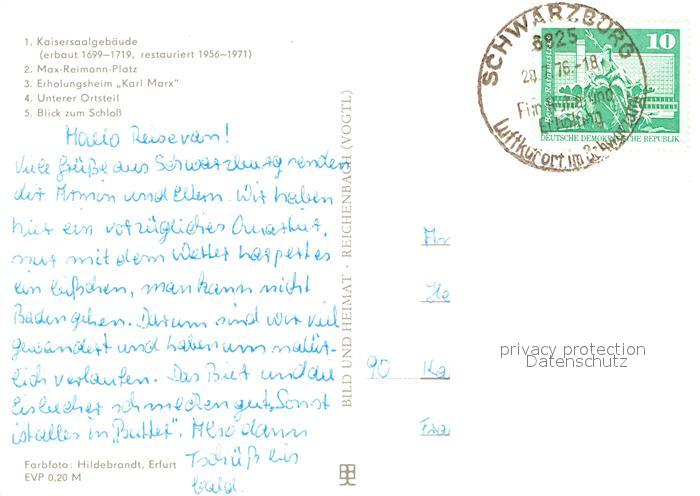 1. Kaisersaalgebäude
(erbaut 1699–1719, restauriert 1956–1971)
2. Max-Reimann-Platz
3. Erholungsheim „Karl Marx“
4. Unterer Ortsteil
5. Blick zum Schloß
Hallo
Viele Grüße aus Schwarzburg senden
dir Armin und Eltern. Wir haben
hier ein vorzügliches Quartier,
nur mit dem Wetter hapert es
ein bißchen, man kann nicht
Baden gehen. Darum sind wir viel
gewandert und haben uns natür-
lich verlaufen. Das Bier und die
Eisbecher schmecken gut, Sonst
ist alles in „Butter“. Also dann
Tschüß bis
bald.
Farbfoto: Hildebrandt, Erfurt
EVP 0,20 M
BILD UND HEIMAT · REICHENBACH (VOGTL)
SCHWARZBURG
6825
10
DEUTSCHE DEMOKRATISCHE REPUBLIK
Luftkurort im
90 Ka
privacy protection
Datenschutz